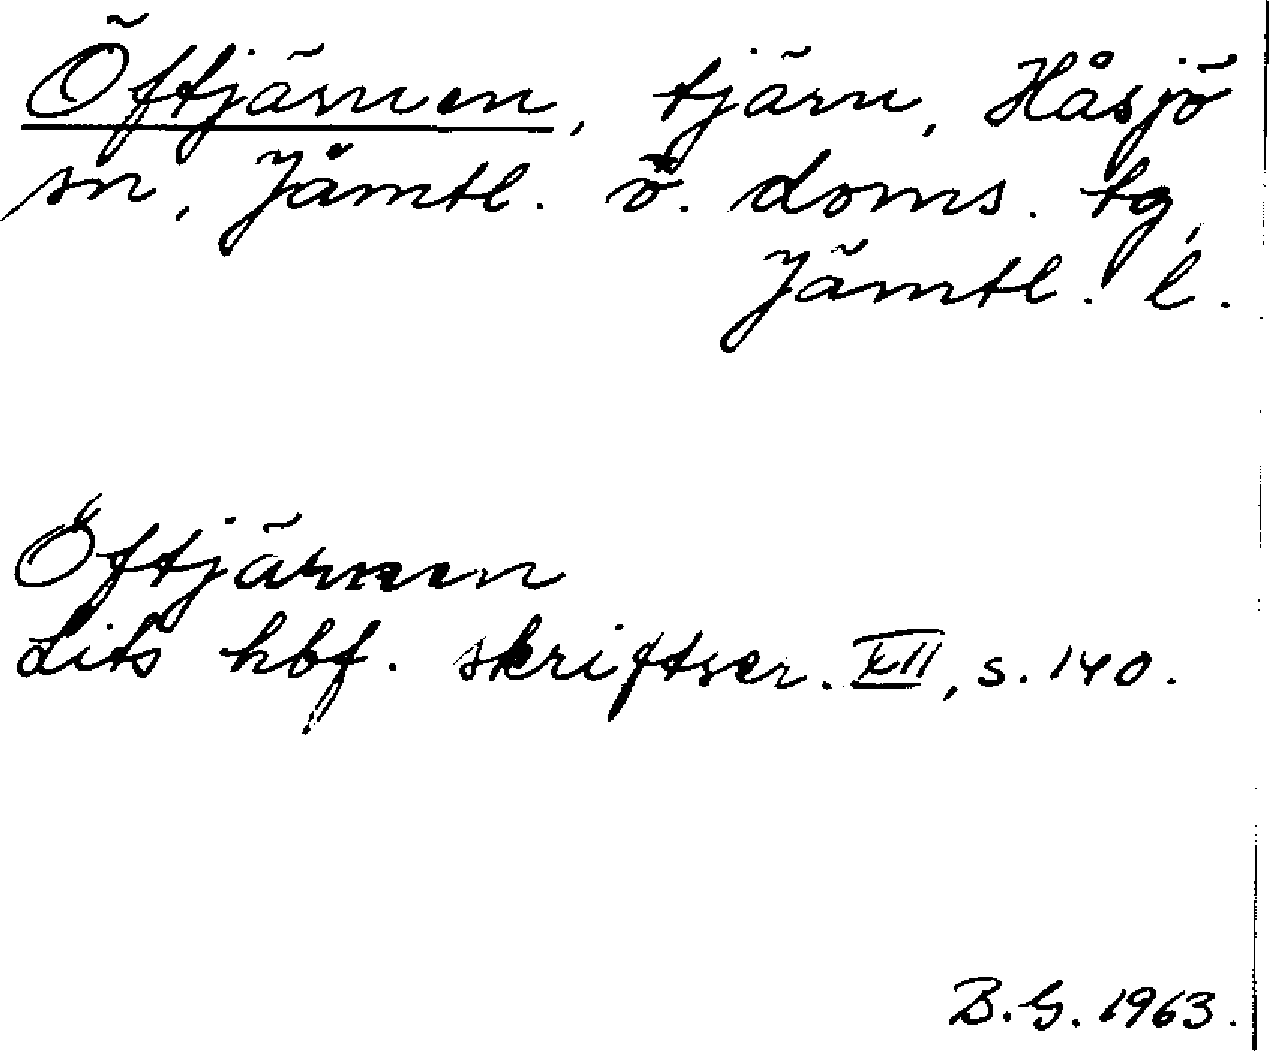 Öftjärnen, tjärn, Håsjö
sn, Jämtl. ö. doms. tg,
Jämtl. l.
Öftjärnen
Lits hbf. skriftser. XII, s. 140.
B.G. 1963.